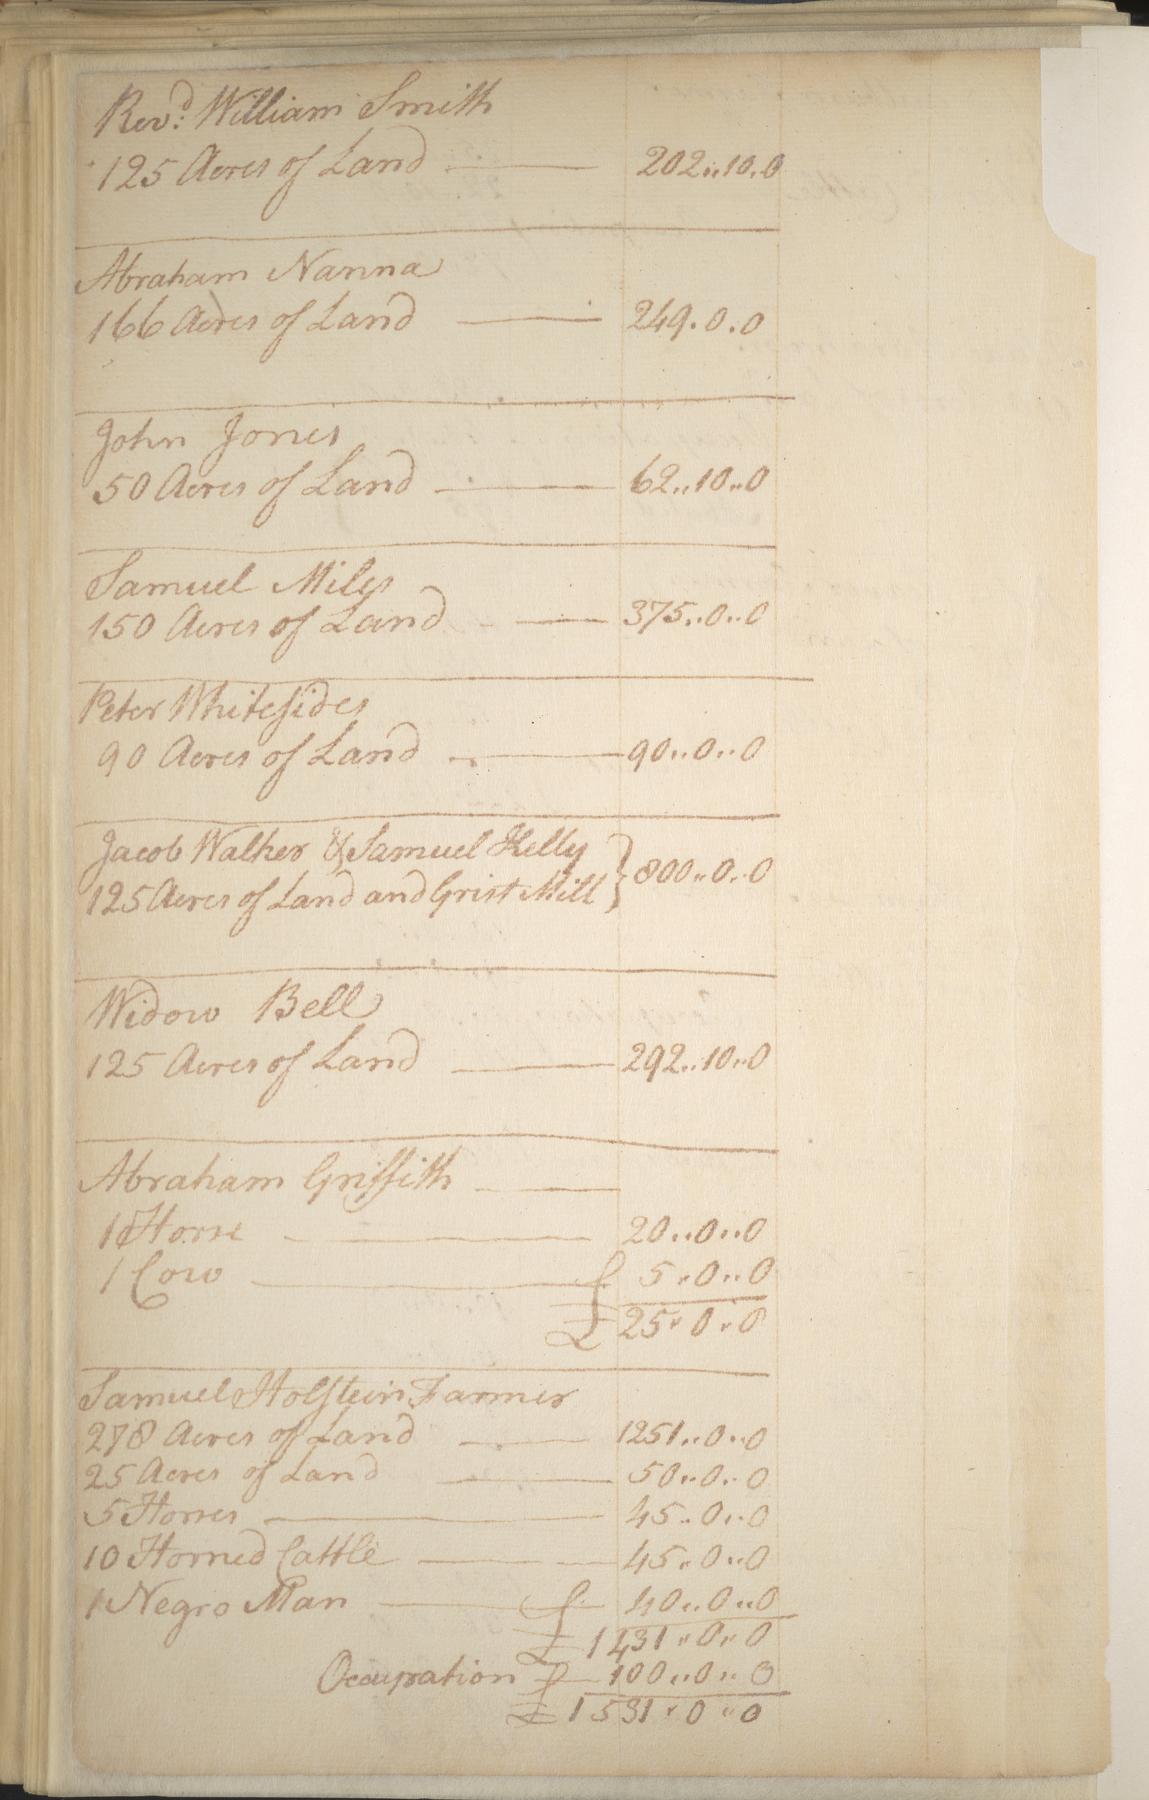 Revd: William Smith
125 Acres of Land 202..10.0
Abraham Nanna
166 Acres of Land 249.0.0
John Jones
50 Acres of Land 62..10..0
Samuel Miles
150 Acres of Land 375..0..0
Peter Whitesides
90 Acres of Land 90..0..0
Jacob Walker & Samuel Kelly
125 Acres of Land and Grist Mill } 800..0..0
Widow Bell
125 Acres of Land 292..10..0
Abraham Griffith
1 Horse 20..0..0
1 Cow 5..0..0
£ 25..0..0
Samuel Holstein Farmer
278 Acres of Land 1251..0..0
25 Acres of Land 50..0..0
5 Horses 45..0..0
10 Horned Cattle 45..0..0
1 Negro Man 40..0..0
£ 1431..0..0
Occupation 100..0..0
£ 1531..0..0